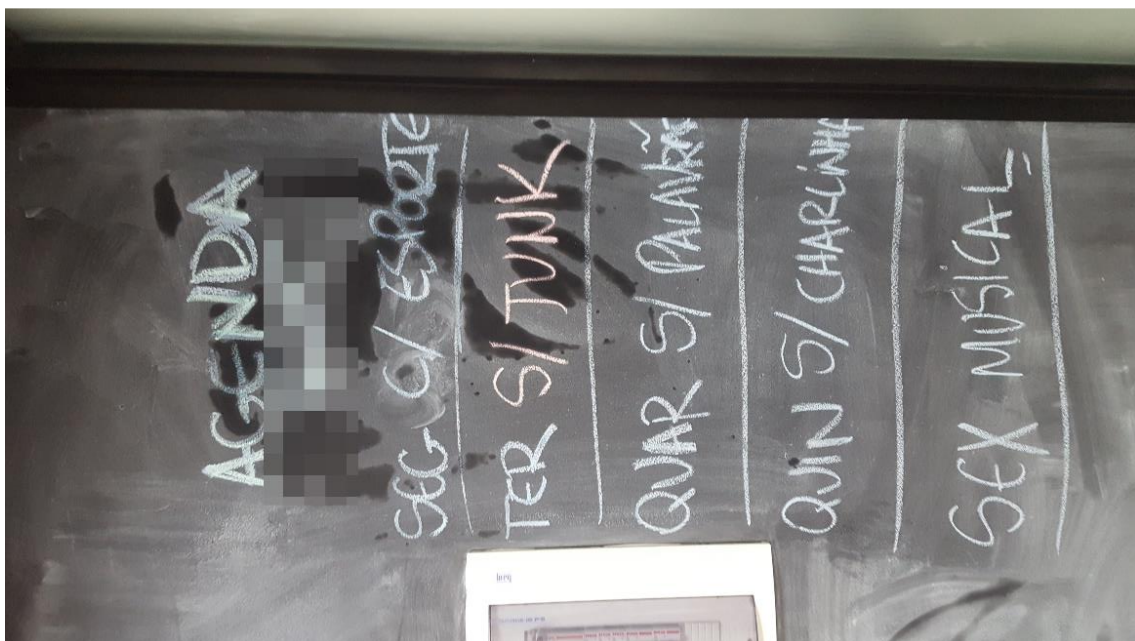 AGENDA
SEG G/ ESPORTE
TER S/ TUNK
QUAR S/ PALAVRÃ
QUIN S/ CHARLINHA
SEX MUSICAL